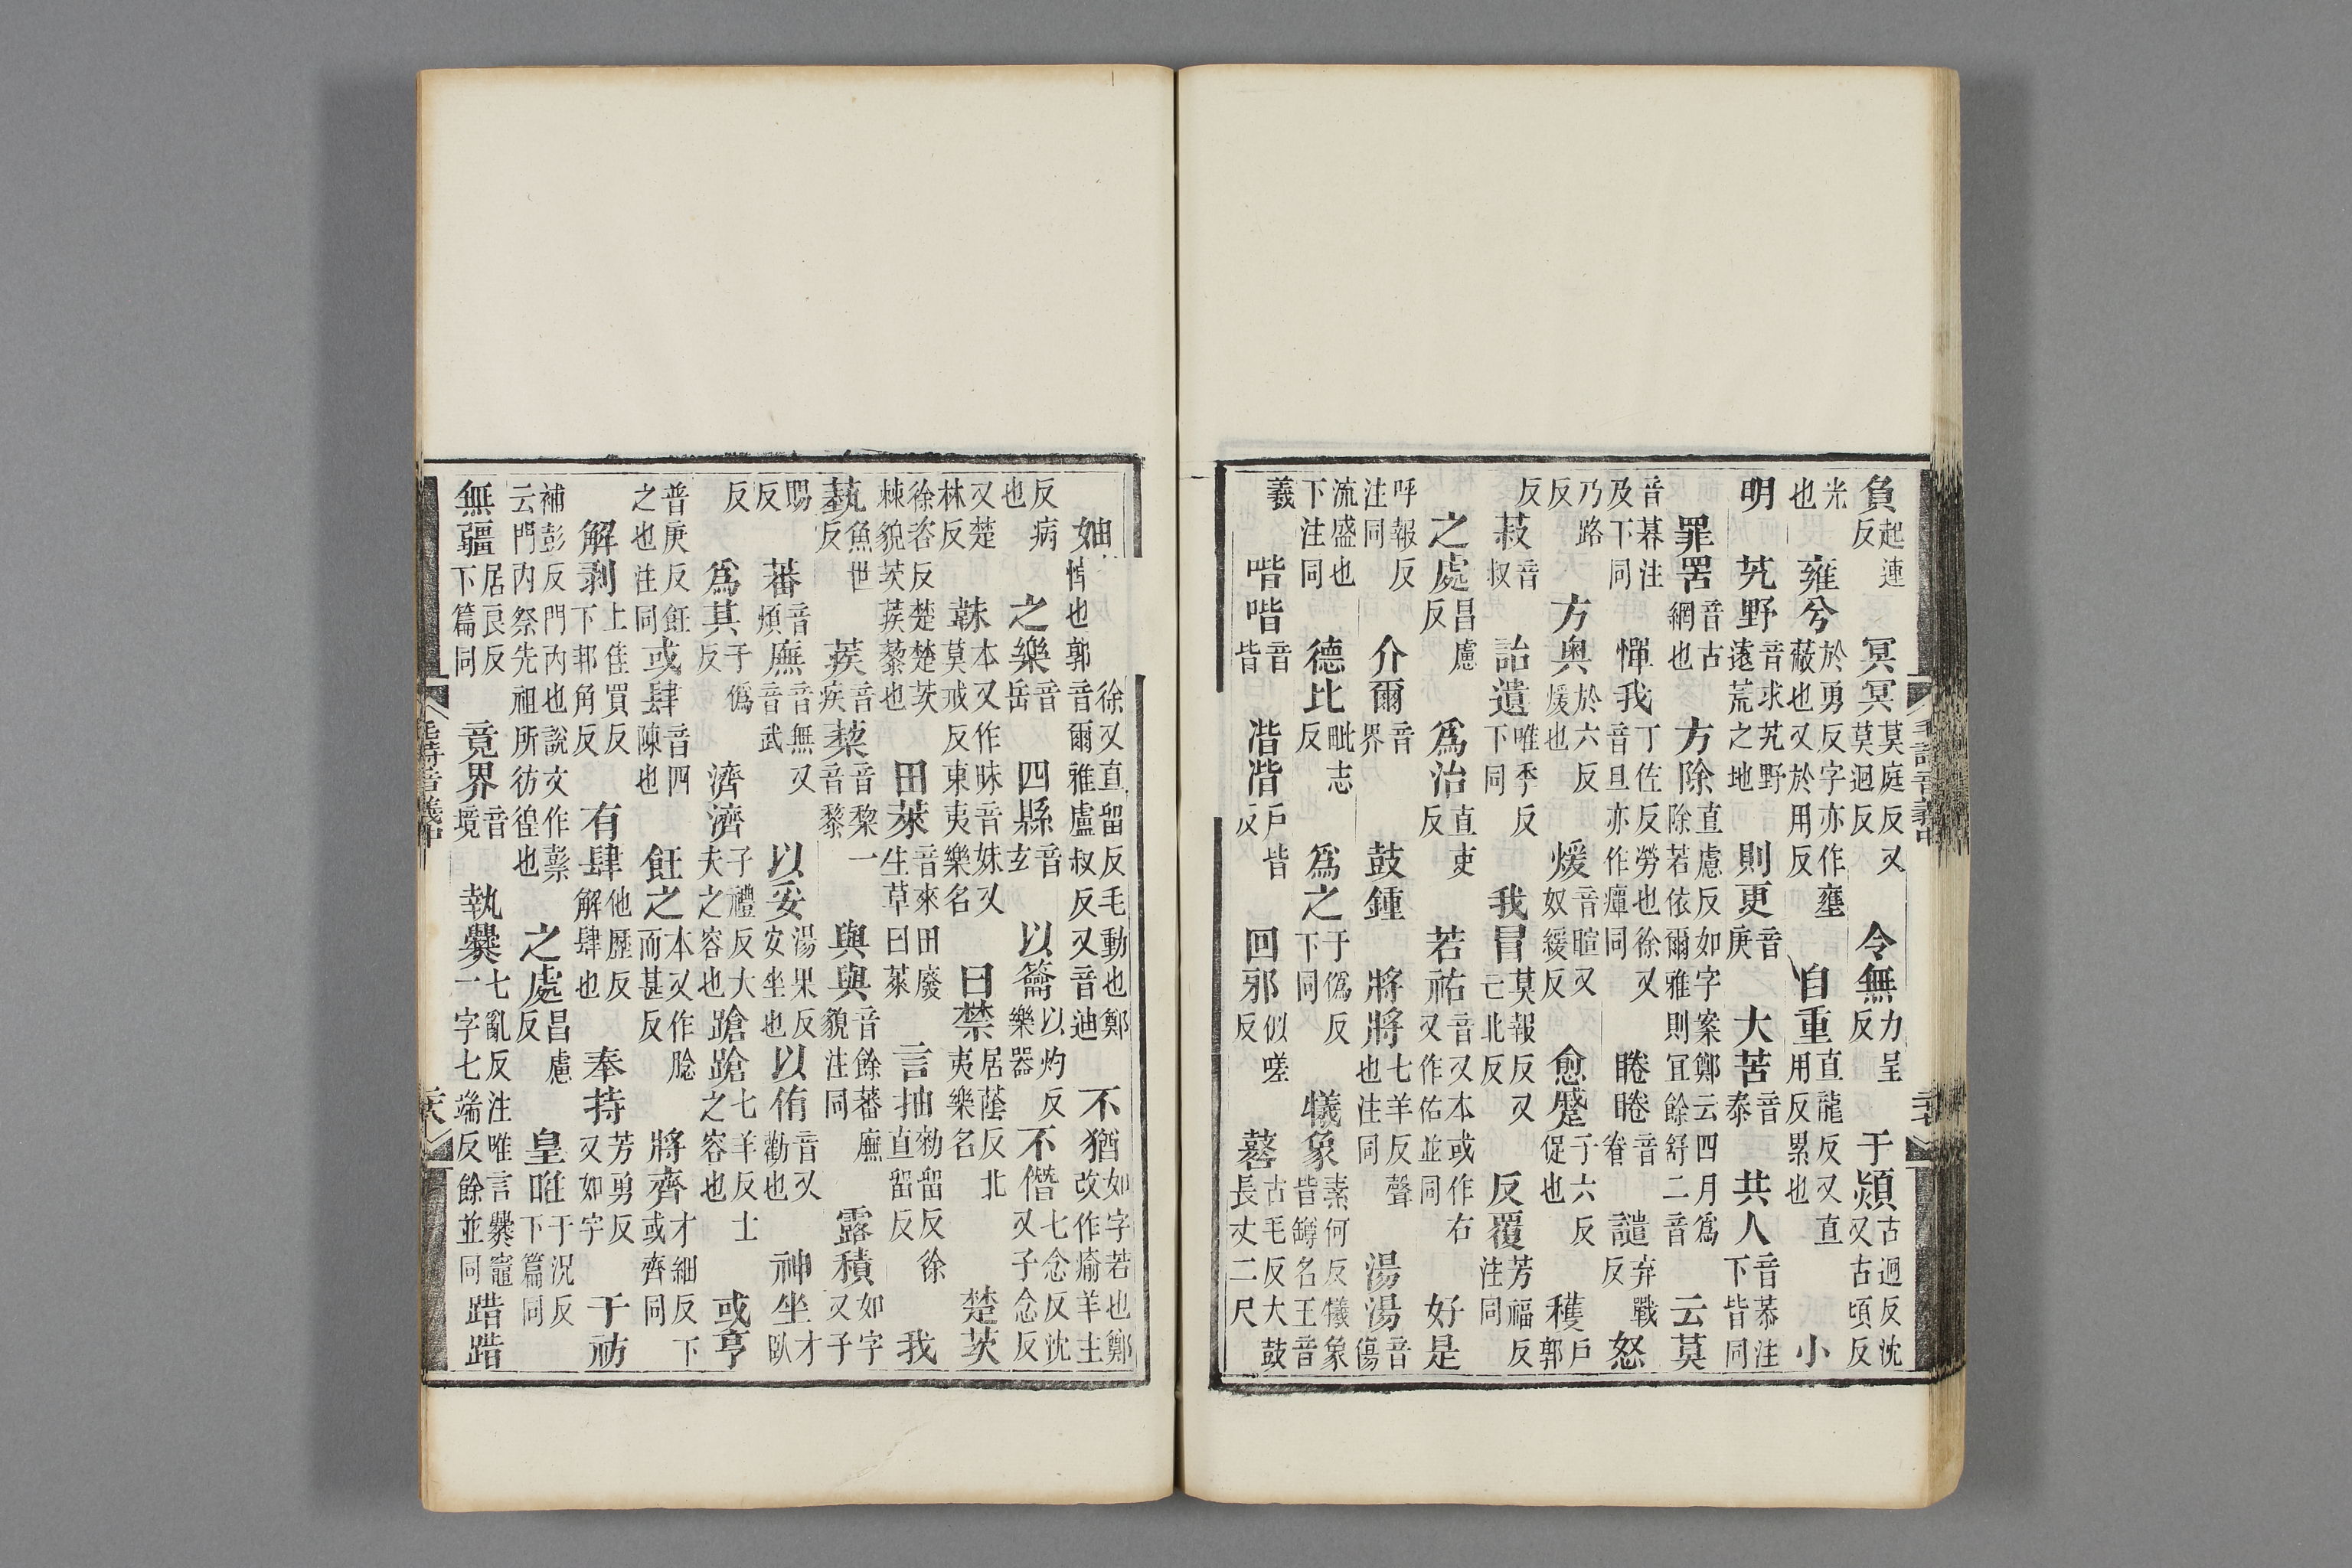 負起連反　冥冥莫庭反又莫迥反　令無力呈反　于熲古迥反沈又古頃反
光也　雍兮於勇反字亦作壅蔽也又於用反　自重直龍反又直用反累也　小
明　艽野音求艽野遠荒之地　則更音庚　大苦音泰　共人音恭注下皆同
罪罟音古網也　方除直慮反如字案鄭云四月爲除若依爾雅則宜餘舒二音　云莫
音暮注及下同　憚我丁佐反勞也徐又音旦亦作癉同　睠睠音眷　譴弃戰反　怒
乃路反　方奧於六反煖也　煖音暄又奴緩反　愈蹙子六反促也　穫戶郭
反　菽音叔　詒遺唯季反下同　我冒莫報反又亡北反　反覆芳福反注同
之處昌慮反　爲治直吏反　若祐音又本或作右又作佑並同　好是
呼報反注同　介爾音界　鼓鍾　將將七羊反聲也注同　湯湯音傷
流盛也下注同　德比毗志反　爲之于僞反下同　犧象素何反犧象皆罇名王音
羲　喈喈音皆　湝湝戶皆反　回邪似嗟反　鼛古毛反大鼓長丈二尺
妯徐又直留反毛動也鄭悼也郭音爾雅盧叔反又音迪　不猶如字若也鄭改作瘉羊主
反病也　之樂音岳　四縣音玄　以籥以灼反樂器　不僭七念反沈又子念反
又楚林反　韎本又作昧音妹又莫戒反東夷樂名　曰禁居蔭反北夷樂名　楚茨
徐咨反楚楚茨棘貌茨蒺藜也　田萊音來田廢生草曰萊　言抽勑留反徐直留反　我
蓺魚世反　蒺音疾　蔾音棃一音黎　與與音餘蕃廡貌注同　露積如字又子
賜反　蕃音煩　廡音無又音武　以妥湯果反安坐也　以侑音又勸也　神坐才臥
反　爲其于僞反　濟濟子禮反大夫之容也　蹌蹌七羊反士之容也　或亨
普庚反飪之也注同　或肆音四陳也　飪之本又作腍而甚反　將齊才細反下或齊同
解剥上佳買反下邦角反　有肆他歷反解肆也　奉持芳勇反又如字　于祊
補彭反門內也說文作𥛱云門內祭先祖所彷徨也　之處昌慮反　皇暀于況反下篇同
無疆居良反下篇同　竟界音境　執爨七亂反注唯言爨竈一字七端反餘並同　踖踖
毛詩音義中